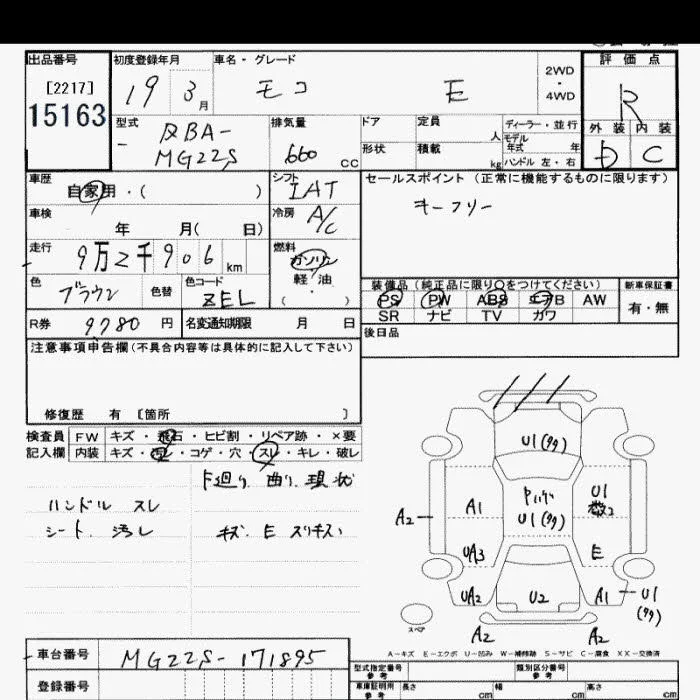 出品番号 初度登録年月 車名・グレード 評価点
[2217] 19 3月 モコ E 2WD・4WD R
15163
型式 DBA-MG22S 排気量 660cc ドア 定員 人 ディーラー・並行 外装 内装
形状 積載 kg モデル年式 年 D C
ハンドル 左・右
車歴 自家用・( ) シフト IAT セールスポイント (正常に機能するものに限ります)
車検 年 月( 日) 冷房 A/C キーフリー
走行 9万2千906km 燃料 ガソリン
軽・油
・( )
色 ブラウン 色替 色コード ZEL 装備品(純正品に限り○をつけてください) 新車保証書
PS PW ABS エアB AW 有・無
R券 9780円 名変通知期限 月 日 SR ナビ TV カワ
注意事項申告欄(不具合内容等は具体的に記入して下さい) 後日品
修復歴 有 [箇所 ]
検査員 FW キズ・飛石・ヒビ割・リペア跡・×要
記入欄 内装 キズ・汚レ・コゲ・穴・スレ・キレ・破レ
F廻り 曲り 現状
ハンドル スレ
シート 汚レ キズ E
U1
A1 U1 U1
A2
UA3 E
UA2 U2 A1 U1
スペア A2 A2
A-キズ E-エクボ U-凹み W-補修跡 S-サビ C-腐食 XX-交換済
車台番号 MG22S-171895 型式指定番号 参考 類別区分番号 参考
登録番号 車庫証明用 参考 長さ cm 幅 cm 高さ cm